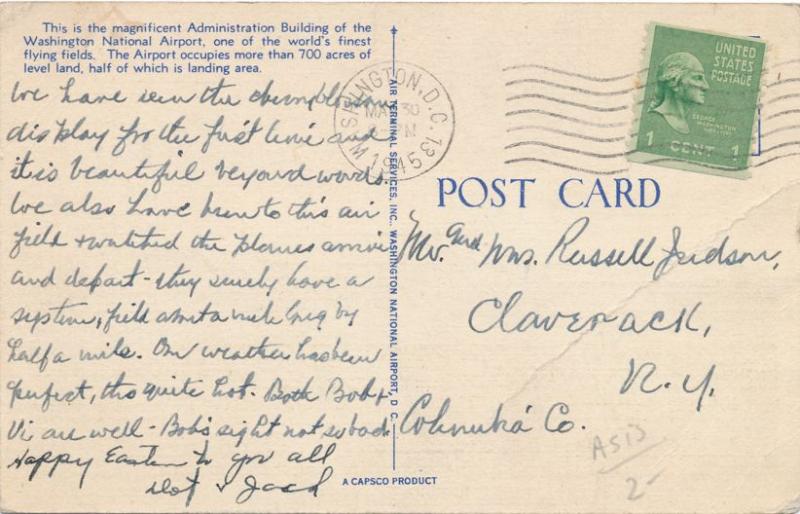 This is the magnificent Administration Building of the
Washington National Airport, one of the world's finest
flying fields. The Airport occupies more than 700 acres of
level land, half of which is landing area.
We have seen the
display for the first time and
it is beautiful beyond words.
We also have been to this air
field & watched the planes arrive
and depart - they surely have a
system, field about a mile long by
half a mile. Our weather has been
perfect, tho quite hot. Both Bob &
Vi are well - Bob's sight not so bad
Happy Easter to you all
Dot & Jack
AIR TERMINAL SERVICES, INC., WASHINGTON NATIONAL AIRPORT, D. C.
A CAPSCO PRODUCT
WASHINGTON, D.C. 13
MAR 30
1945
UNITED
STATES
POSTAGE
GEORGE
WASHINGTON
1 CENT 1
POST CARD
Mr. and Mrs. Russell Judson,
Claverack,
N. Y.
Columbia Co.
AS IS
2-